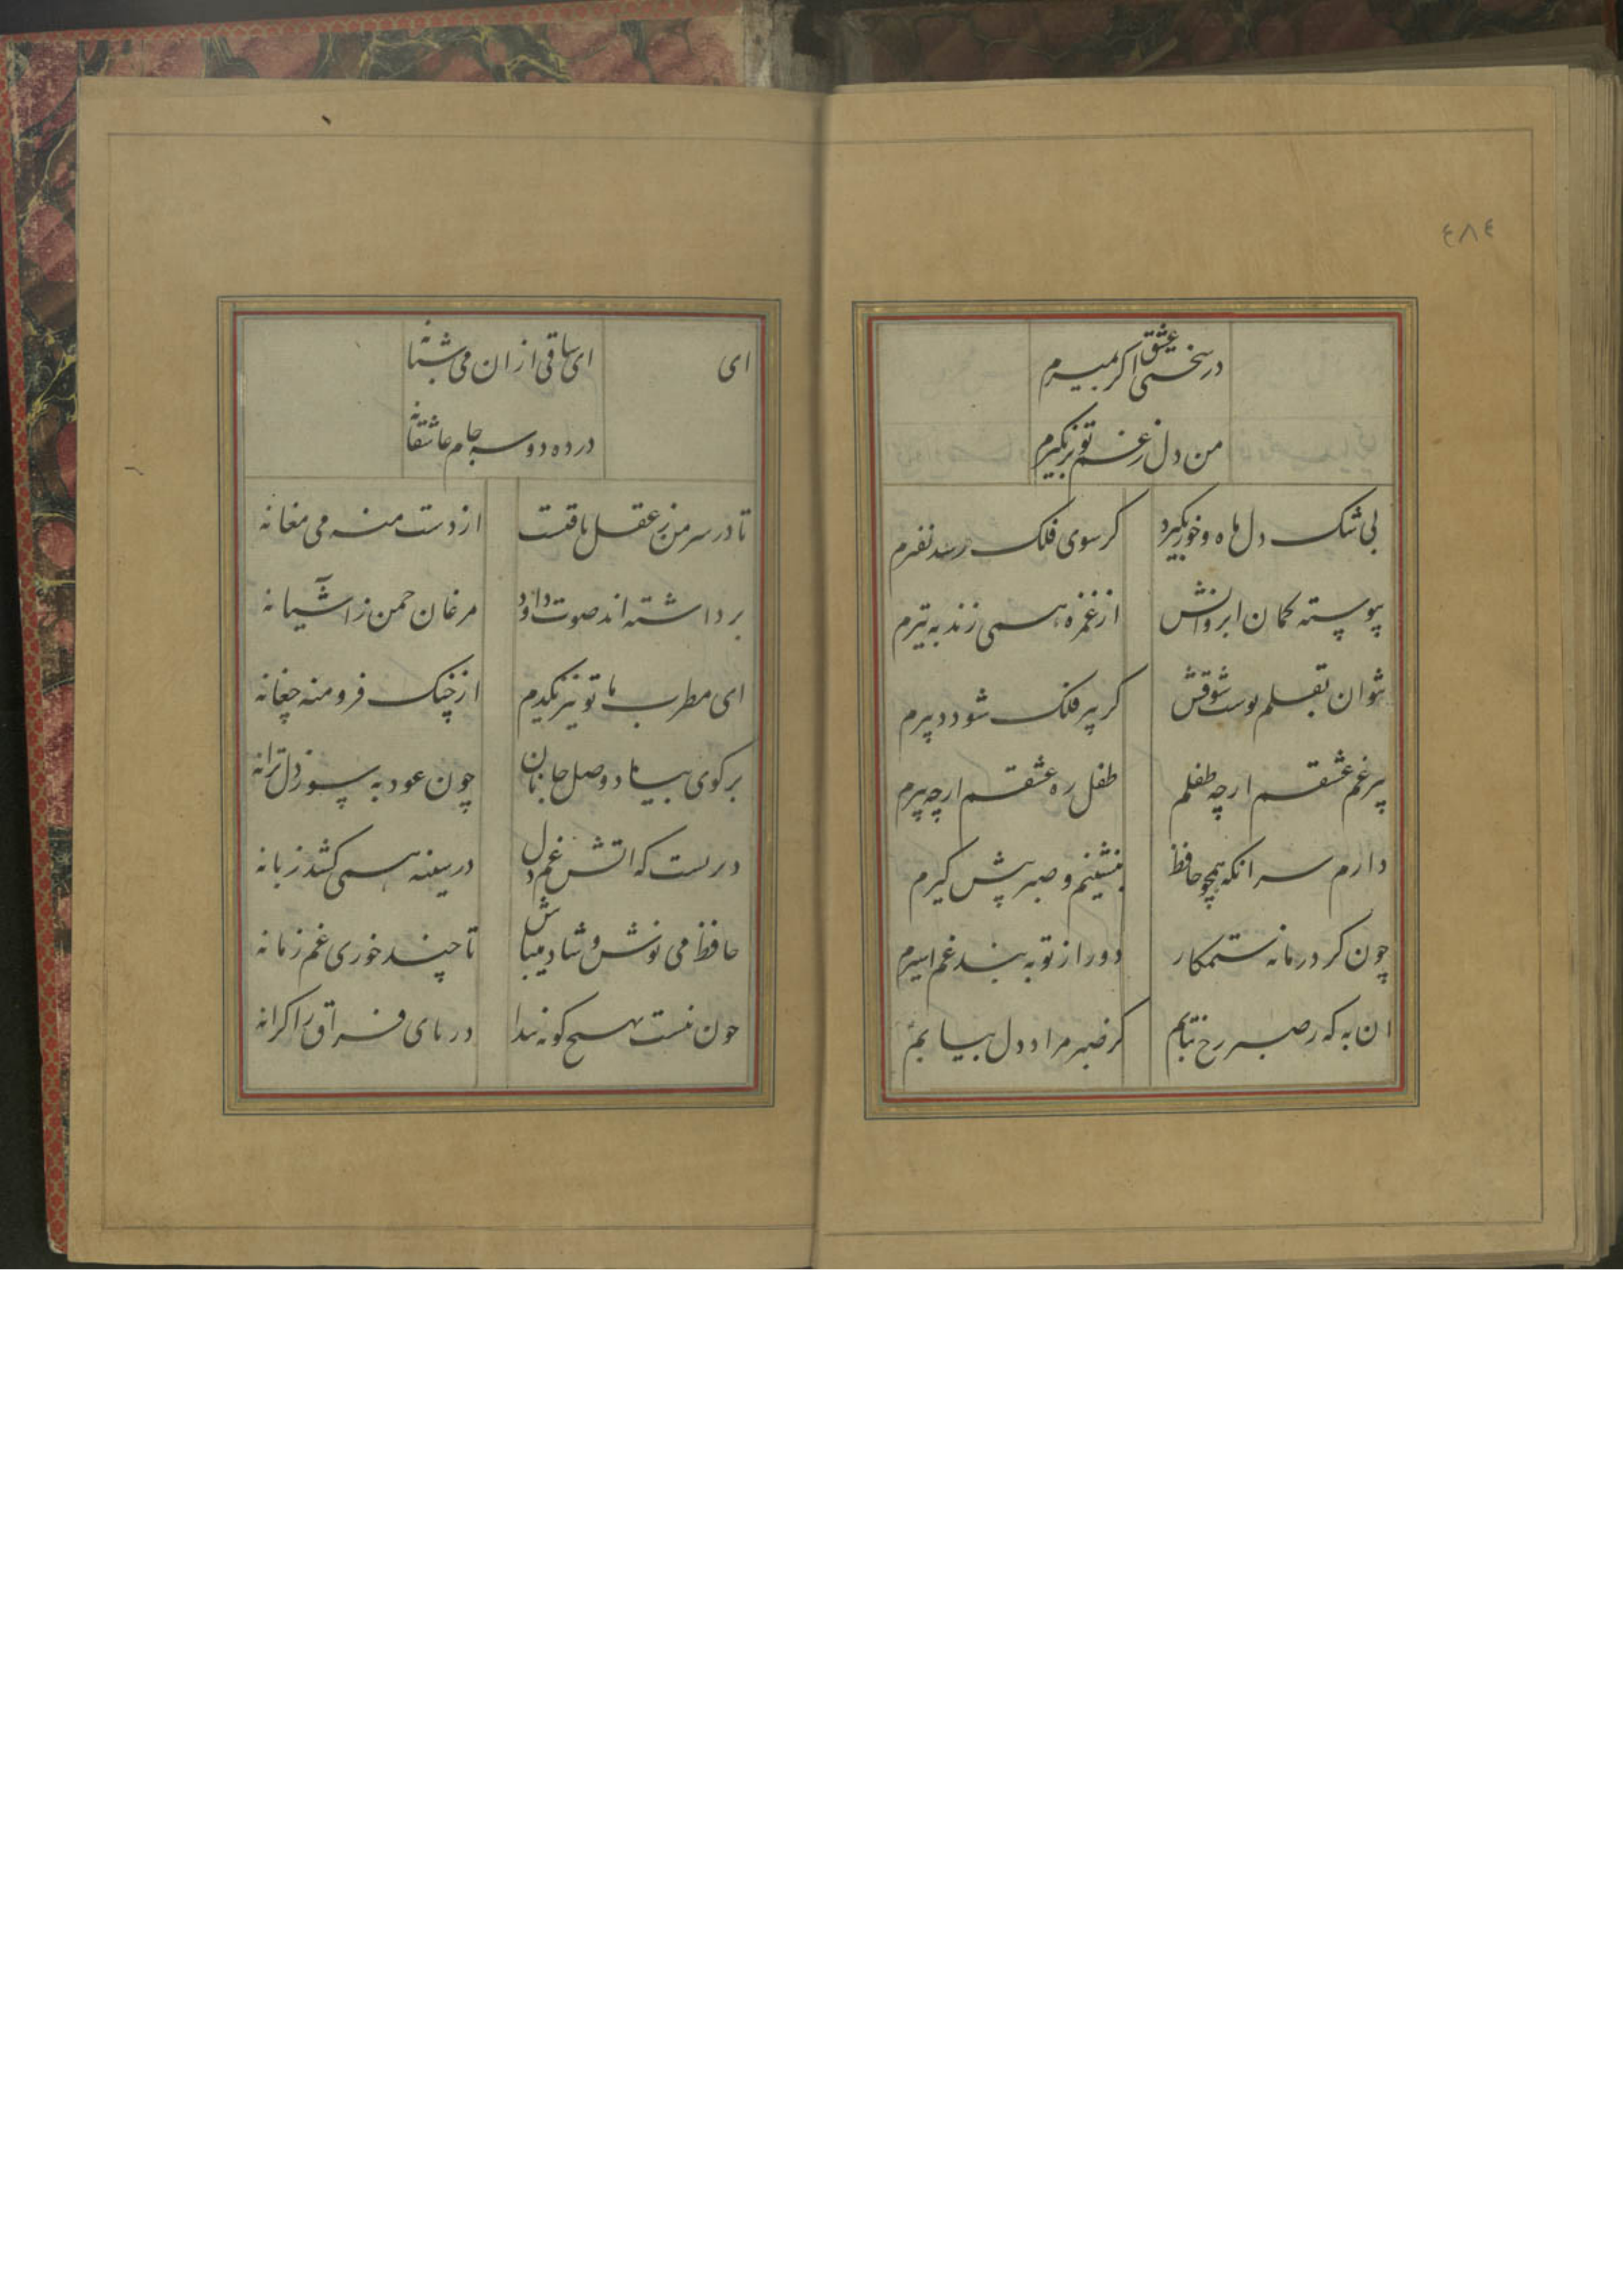 ٤٨٤
در سختی عشق اکر بمیرم
من دل ز غم تو برنکیرم
بی شک دل ماه و خور بکیرد کر سوی فلک رسد نفیرم
پیوسته کمان ابروانش از غمزه همی زند به تیرم
نتوان بقلم نوشت شوقش کر پیر فلک شود دبیرم
پیر غم عشقم ارچه طفلم طفل ره عشقم ارچه پیرم
دارم سر انکه همچو حافظ بنشینم و صبر پیش کیرم
چون کرد زمانه ستمکار دور از تو به بند غم اسیرم
ان به که ز صبر رخ نتابم کز صبر مراد دل بیابم
ای
ای ساقی از ان می شبانه
در ده دو سه جام عاشقانه
تا در سر من ز عقل باقیست از دست منه می مغانه
برداشته اند صوت داود مرغان چمن ز آشیانه
ای مطرب با تو نیز یکدم از چنک فرو منه چغانه
بر کوی بیاد وصل جانان چون عود به سوز دل ترانه
دریست که اتش غم دل در سینه همی کشد زبانه
حافظ می نوش و شاد میباش تا چند خوری غم زمانه
چون نیست بهیچ کونه پیدا دریای فراق را کرانه